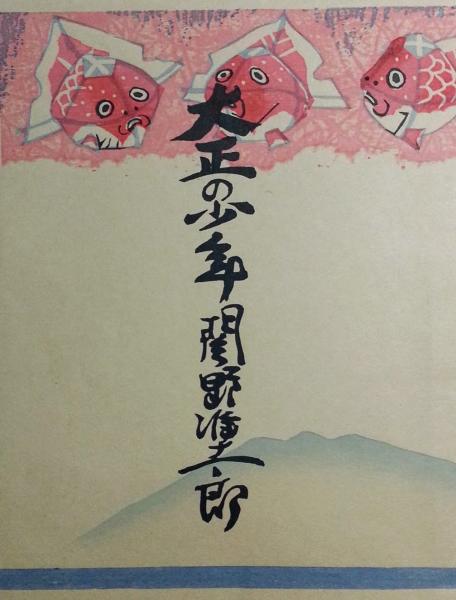 大正の少年 関野凖一郎